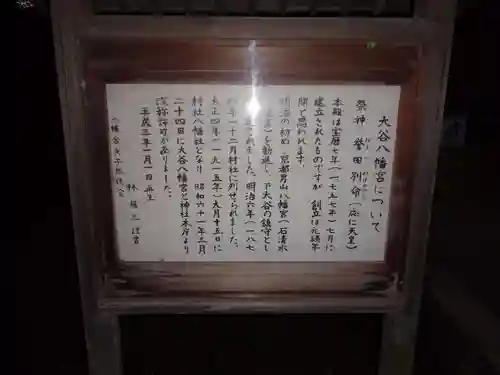 大谷八幡宮について
祭神 誉田別命(応仁天皇)
本殿は宝暦七年(一七五七年)七月に
建立されたものですが 創立は元禄年
間と思われます。
明治の初め 京都男山八幡宮(石清水
を勧進し、下大谷の鎮守とし
されました。明治六年(一八七
年十二月村社に列せられました。
大正四年(一九一五年)九月十五日に
村社八幡社となり 昭和六十一年三月
二十四日に大谷八幡宮と神社本庁より
改称許可がありました。
平成三年一月一日 再生
林